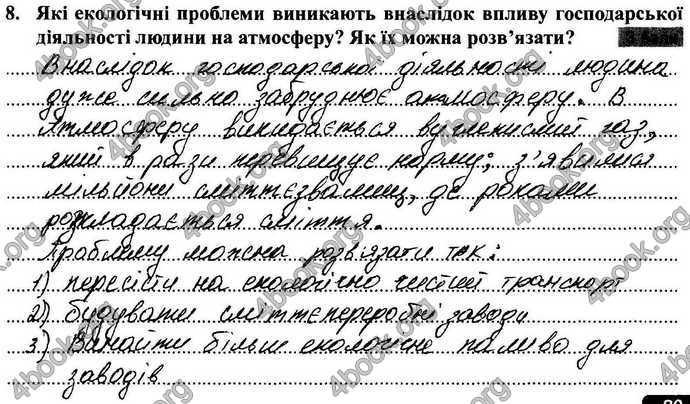 8. Які екологічні проблеми виникають внаслідок впливу господарської
діяльності людини на атмосферу? Як їх можна розв'язати?
Внаслідок господарської діяльності людина
дуже сильно забруднює атмосферу. В
Атмосферу викидається вуглекислий газ,
який в рази перевищує норму; з'явилися
мільйони сміттєзвалищ, де роками
розкладається сміття.
Проблему можна розв'язати так:
1) пересісти на екологічно чистий транспорт
2) будувати сміттєпереробні заводи
3.) Винайти більш екологічне паливо для
заводів